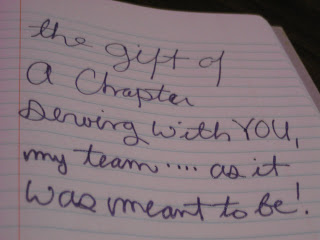 the gift of
a Chapter
serving with YOU,
my team.... as it
was meant to be!